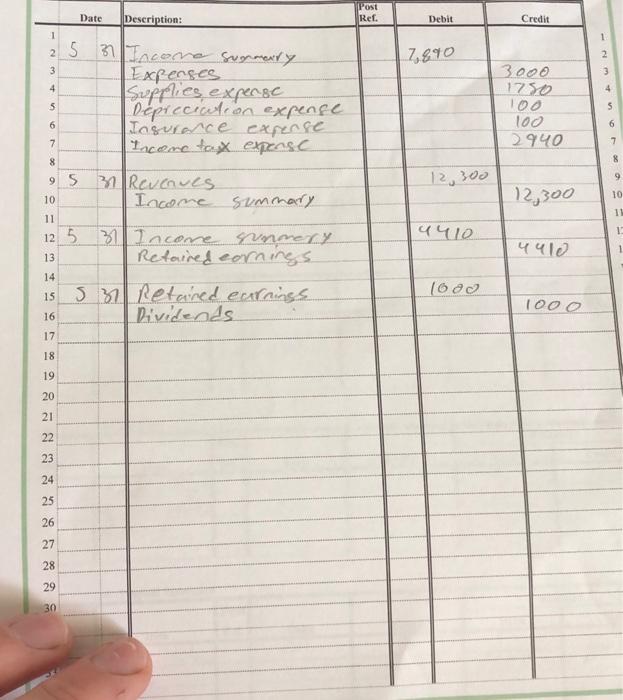 Date Description: Post Ref. Debit Credit
1 1
2 5 31 Income summary 7,890 2
3 Expenses 3000 3
4 Supplies expense 1750 4
5 Depreciation expense 100 5
6 Insurance expense 100 6
7 Income tax expense 2940 7
8 8
9 5 31 Revenues 12,300 9
10 Income summary 12,300 10
11 11
12 5 31 Income summary 4410
13 Retained earnings 4410
14
15 5 31 Retained earnings 1000
16 Dividends 1000
17
18
19
20
21
22
23
24
25
26
27
28
29
30